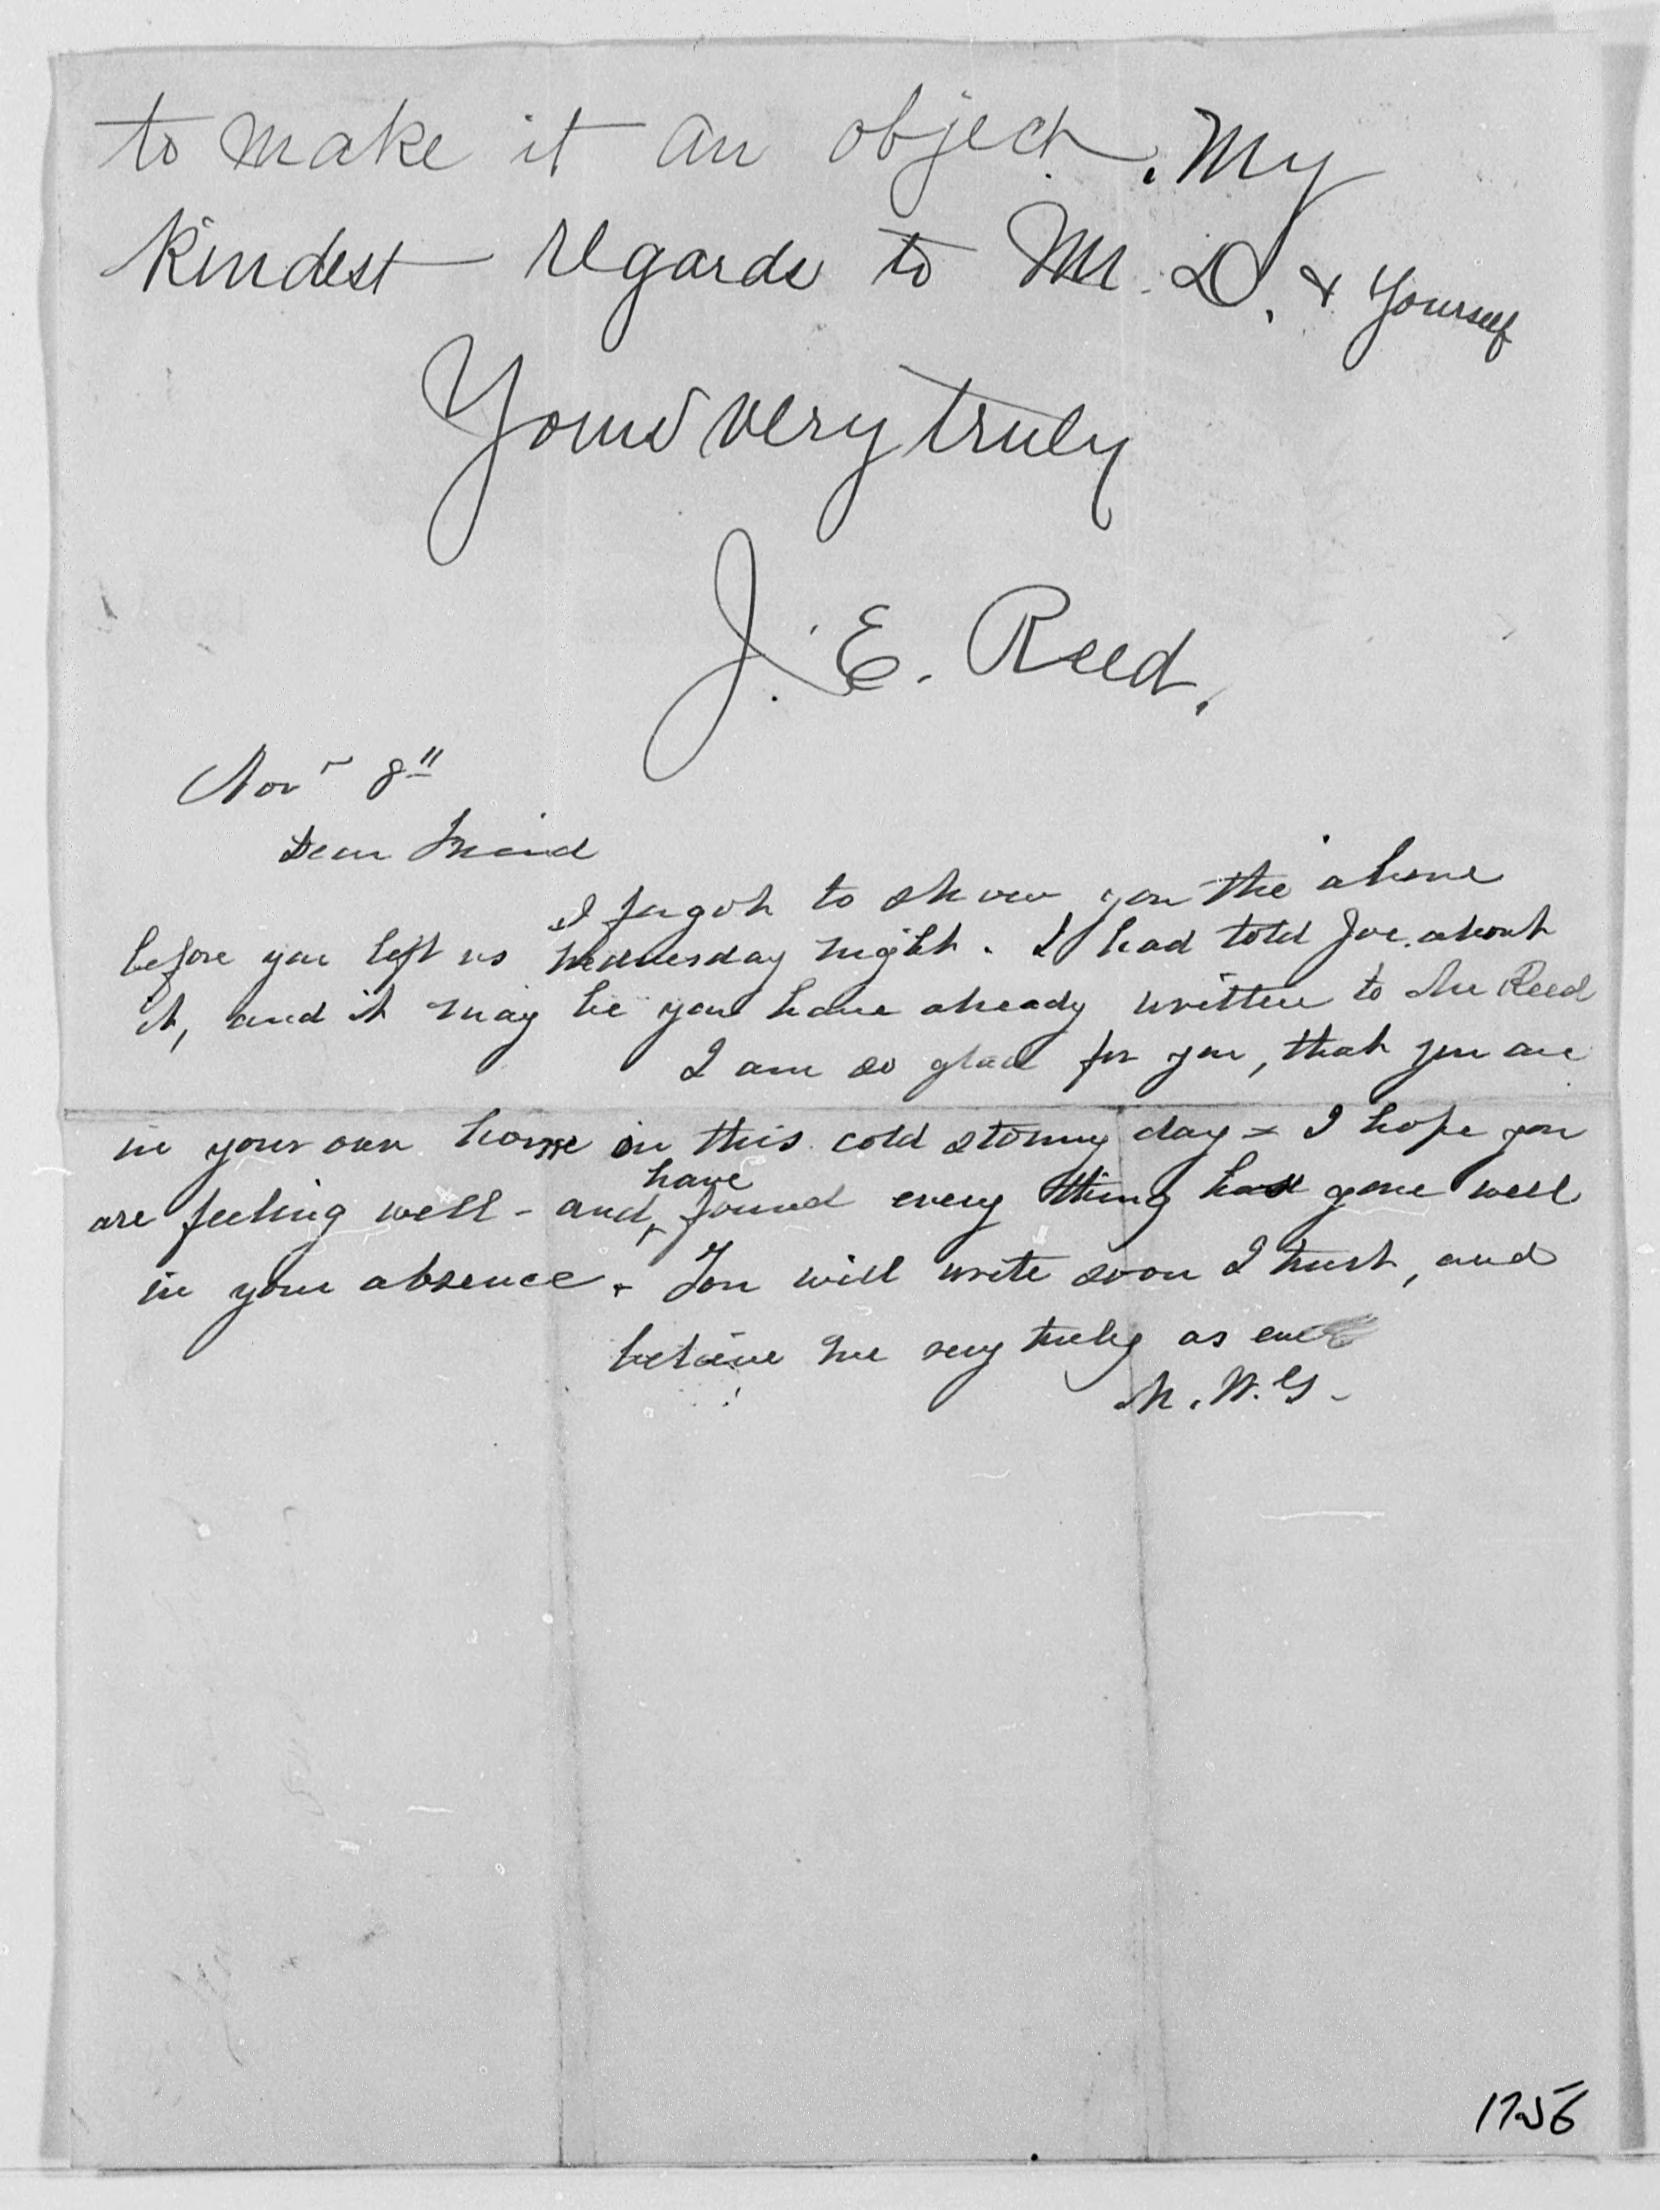 to make it an object. My
kindest regards to Mr. D. & yourself
Yours very truly
J. E. Reed.
Novr 8"
Dear Friend
I forgot to show you the above
before you left us Wednesday night. I had told Joe about
it, and it may be you have already written to Mr Reed
I am so glad for you, that you are
in your own home on this cold stormy day - I hope you
are feeling well - and have found every thing has gone well
in your absence. You will write soon I trust, and
believe me very truly as ever
M. W. G.
1756